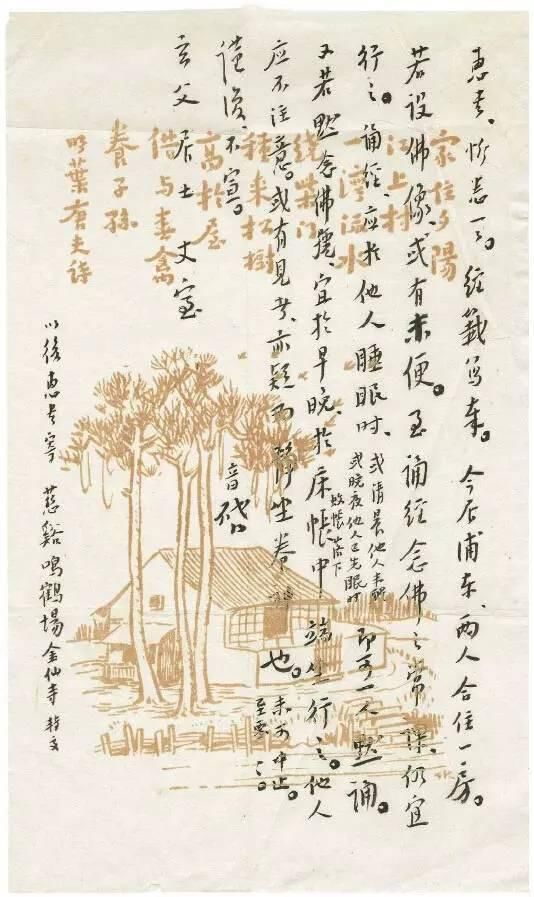 惠書、忻悉一一。經籤寫奉。今居浦东、兩人合住一房。
若設佛像、或有未便。至誦經念佛之常課、仍宜
行之。誦經、应於他人睡眠时、或清晨他人未醒
或晚夜他人已先眠时
即可一人默誦。
又若默念佛號、宜於早晚、於床帳
蚊帳落下
中端坐行之。他人
应不注意。或有見者、亦疑为静坐養神也。
未可中止。
至要
謹復、不宣。
音啓
玄父居士丈室
以後惠书寄 慈谿鳴鶴場金仙寺转交
家住夕陽
江上村
一灣流水
繞柴門
種來松樹
高於屋
借与春禽
養子孫
明葉唐夫詩